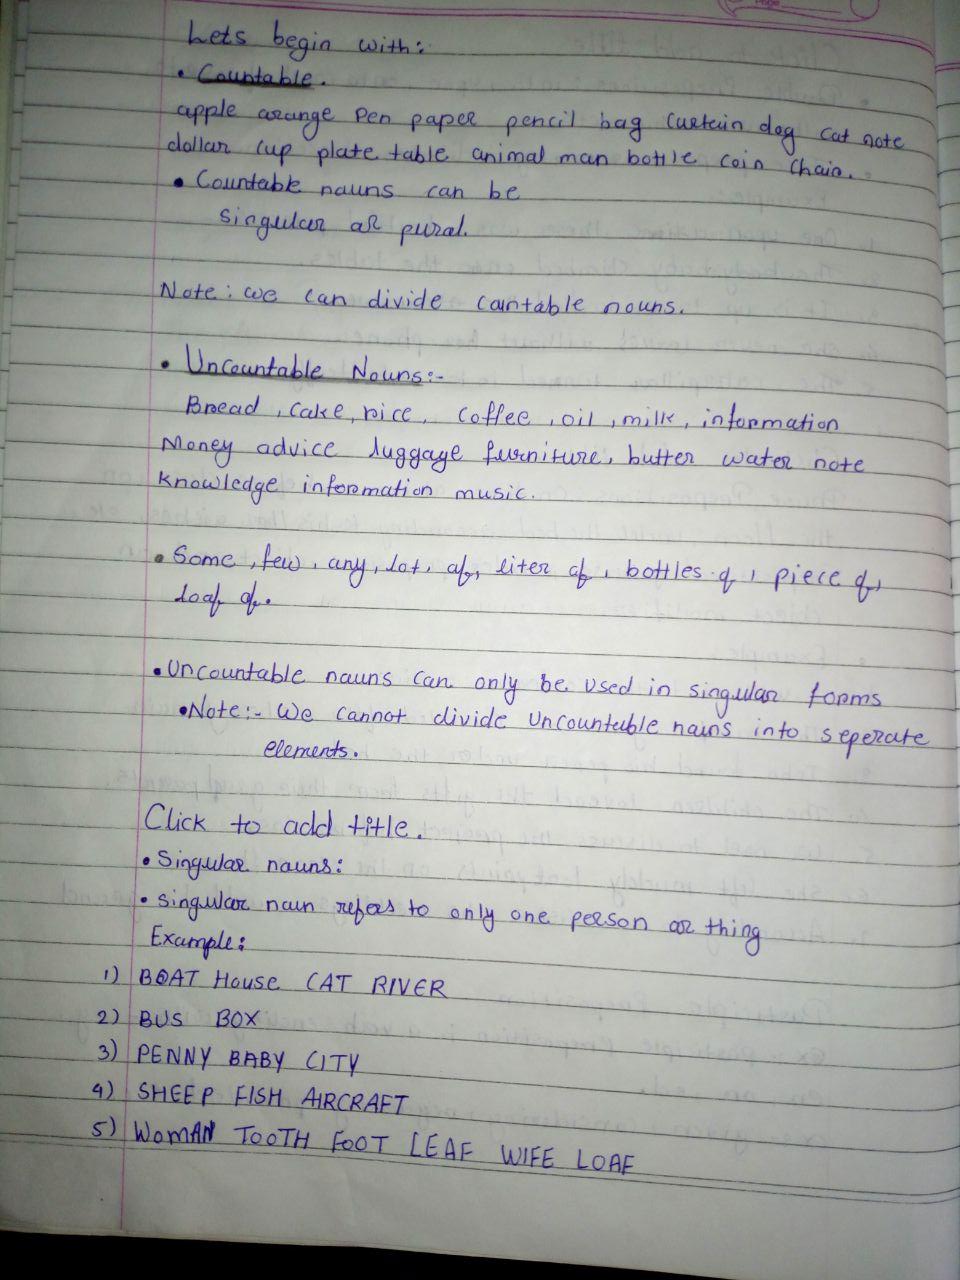 Lets begin with:
• Countable.
apple orange Pen paper pencil bag Curtain dog Cat note
dollar Cup plate table animal man bottle Coin Chain.
• Countable nauns can be
singular or pural.
Note: we can divide Cauntable nouns.
• Uncountable Nouns:-
Bread, Cake, rice, Coffee, oil, milk, information
Money advice luggage furniture, butter water note
Knowledge information music.
• Some, few, any, lot, of, liter of, bottles of, piece of,
loaf of.
• Uncountable nauns Can only be used in singular forms
• Note:- We Cannot divide Uncountable nauns into seperate
elements.
Click to add title.
• Singular nauns:
• singular naun refers to only one person or thing
Example:
1) BOAT House CAT RIVER
2) BUS BOX
3) PENNY BABY CITY
4) SHEEP FISH AIRCRAFT
5) WOMAN TOOTH FOOT LEAF WIFE LOAF